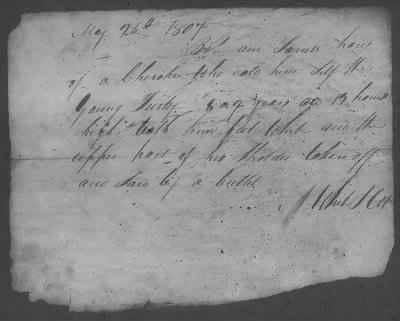 May 24th 1807
Bot ane Sorrel hors
of a Cherokee who cald him Self the
young Turky 8 or 9 years old 13 hans
high both hine feet White and the
upper part of his Sholder taken off
and Said by a bullet
J White